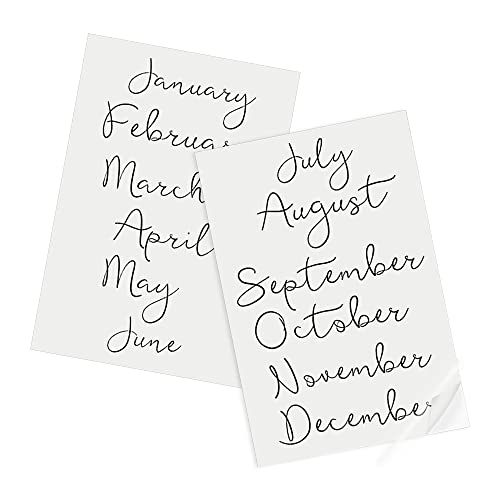 January
Februar
March
April
May
June
July
August
September
October
November
December